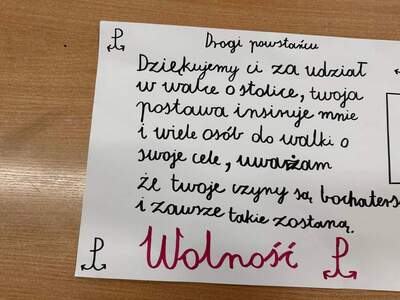 Drogi powstańcu
Dziękujemy ci za udział
w walce o stolice, twoja
postawa insiruje mnie
i wiele osób do walki o
swoje cele, uważam
że twoje czyny są bochaters
i zawsze takie zostaną.
Wolność